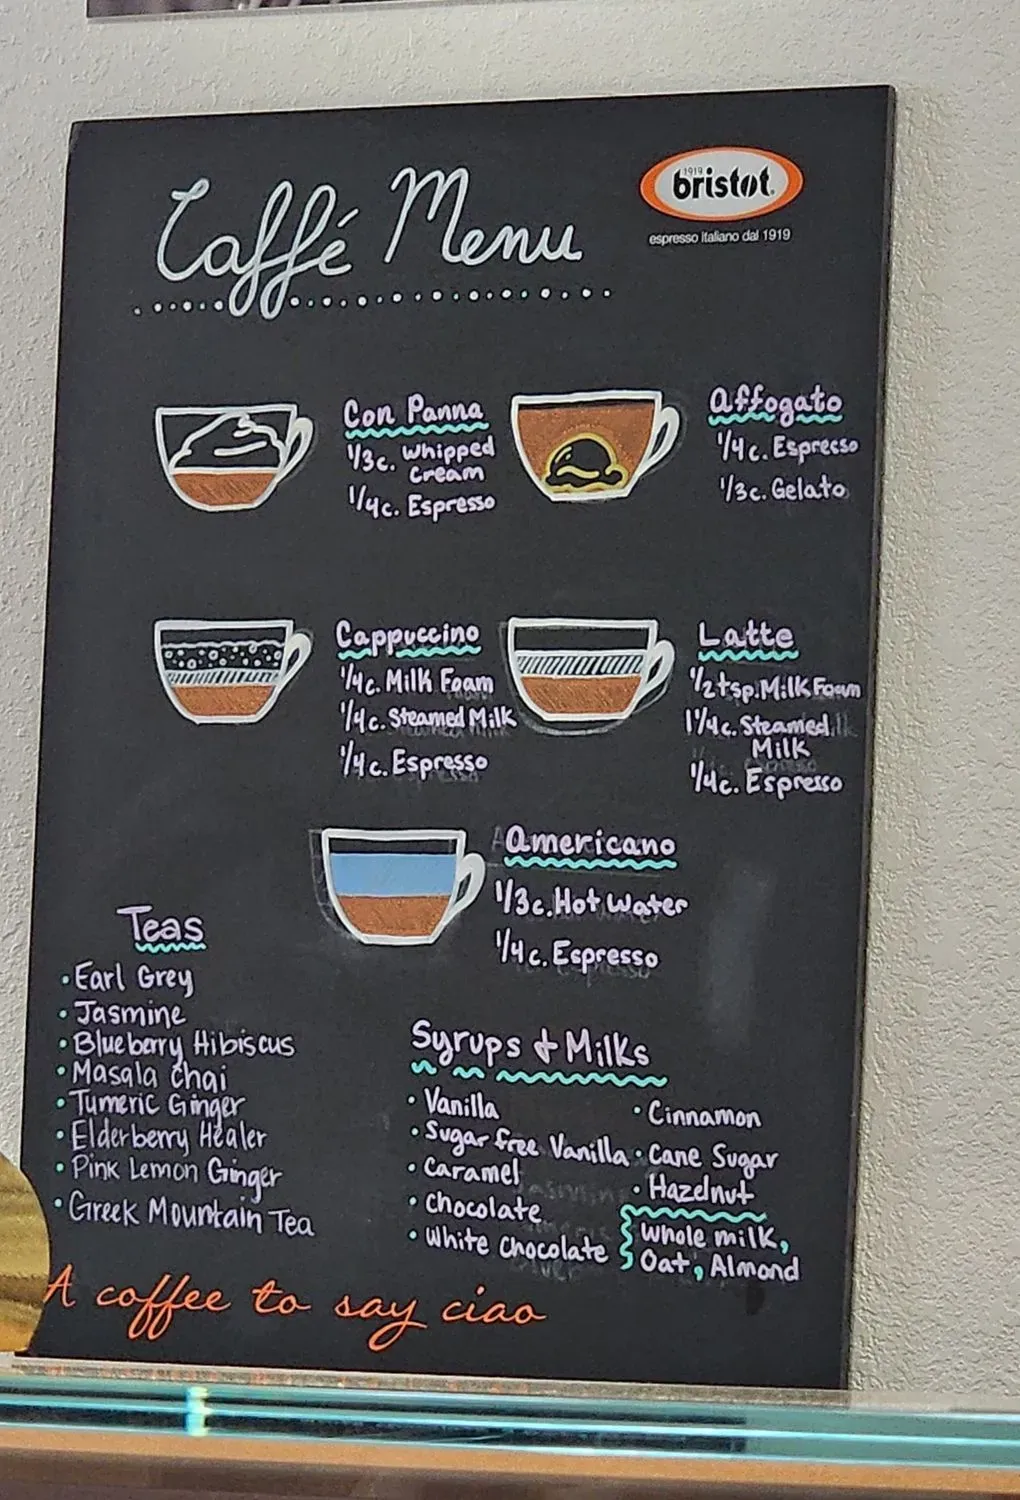 Caffé Menu
1919
bristot
espresso italiano dal 1919
Con Panna
1/3c. Whipped
Cream
1/4c. Espresso
Affogato
1/4c. Espresso
1/3c. Gelato
Cappuccino
1/4c. Milk Foam
1/4c. Steamed Milk
1/4c. Espresso
Latte
1/2tsp. Milk Foam
1 1/4c. Steamed
Milk
1/4c. Espresso
Americano
1/3c. Hot Water
1/4c. Espresso
Teas
• Earl Grey
• Jasmine
• Blueberry Hibiscus
• Masala Chai
• Tumeric Ginger
• Elderberry Healer
• Pink Lemon Ginger
• Greek Mountain Tea
Syrups + Milks
• Vanilla
• Sugar Free Vanilla
• Caramel
• Chocolate
• White Chocolate
• Cinnamon
• Cane Sugar
• Hazelnut
Whole milk,
Oat, Almond
A coffee to say ciao